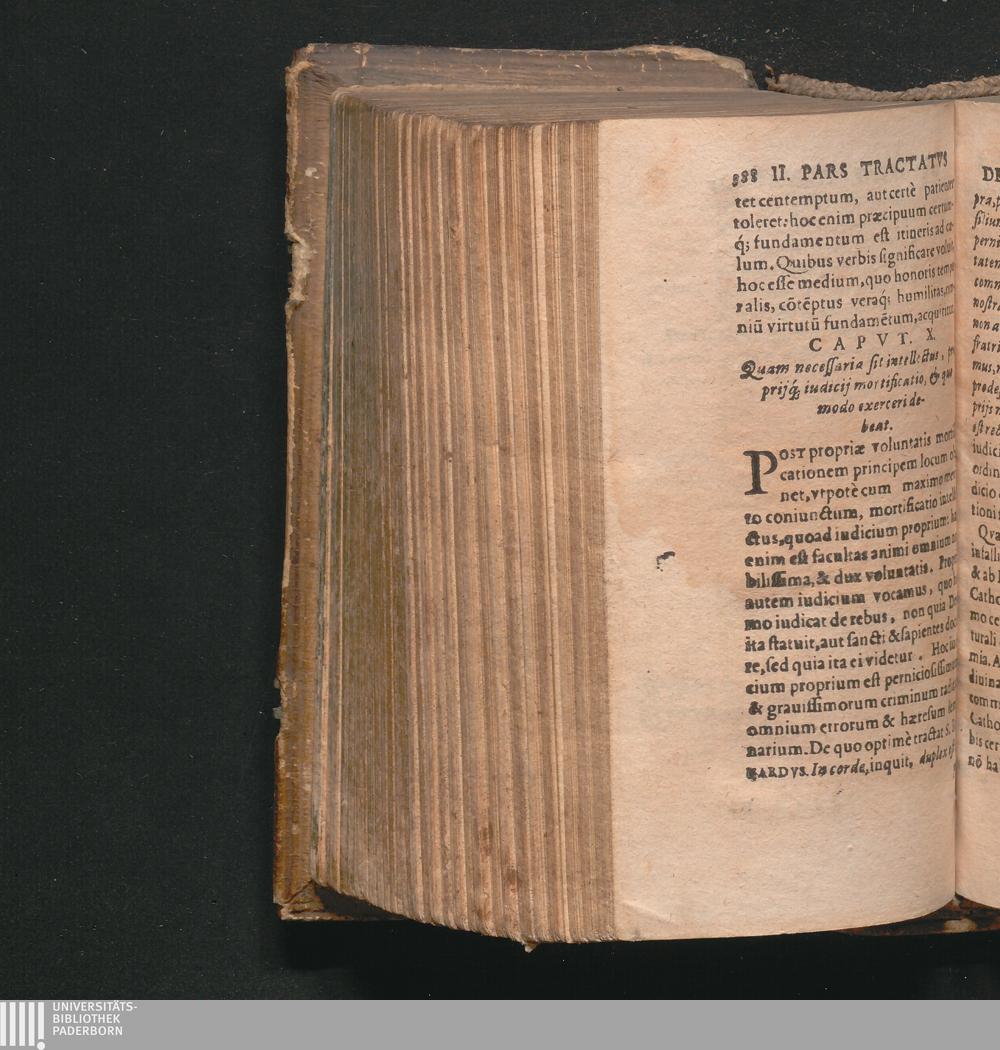 888 II. PARS TRACTATVS
tet centemptum, aut certè patienter
toleret: hoc enim præcipuum certum-
q́; fundamentum est itineris ad cæ-
lum. Quibus verbis significare voluit
hoc esse medium, quo honoris tempo
ralis, cõtẽptus veraq́; humilitas,
niũ virtutũ fundamẽtum, acquiritur.
CAPVT. X.
Quam necessaria sit intellectus, pro
prijq́; iudicij mortificatio, & quo
modo exerceri de-
beat.
POST propriæ voluntatis mortifi
cationem principem locum
net, vtpotè cum maximo
to coniunctum, mortificatio intelle
ctus, quoad iudicium proprium:
enim est facultas animi omnium no
bilissima, & dux voluntatis.
autem iudicium vocamus, quo
mo iudicat de rebus, non quia
ita statuit, aut sancti & sapientes
re, sed quia ita ei videtur. Hoc
cium proprium est perniciosissimum
& grauissimorum criminum
omnium errorum & hæresum
narium. De quo optimè tractat S.
NARDVS. In corde, inquit, duplex
DE
pernic
taten
nostr
non a
fratri
prijs
iudici
ordin
dicio
tioni
infalli
& ab
Catho
mo ce
turali
mia. A
diuina
comm
Catho
bis cer
nõ ha
UNIVERSITÄTS-
BIBLIOTHEK
PADERBORN